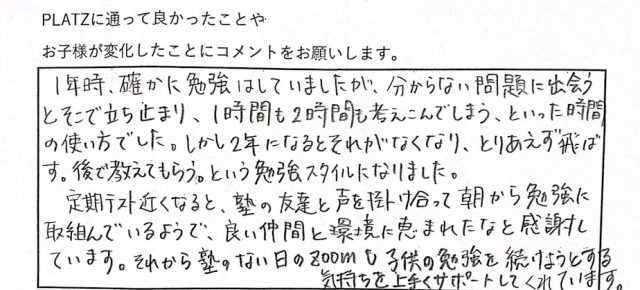 PLATZに通って良かったことや
お子様が変化したことにコメントをお願いします。
1年時、確かに勉強はしていましたが、分からない問題に出会う
とそこで立ち止まり、1時間も2時間も考えこんでしまう、といった時間
の使い方でした。しかし2年になるとそれがなくなり、とりあえず飛ば
す。後で教えてもらう。という勉強スタイルになりました。
定期テスト近くなると、塾の友達と声を掛け合って朝から勉強に
取組んでいるようで、良い仲間と環境に恵まれたなと感謝し
ています。それから塾のない日のzoomも子供の勉強を続けようとする
気持ちを上手くサポートしてくれています。